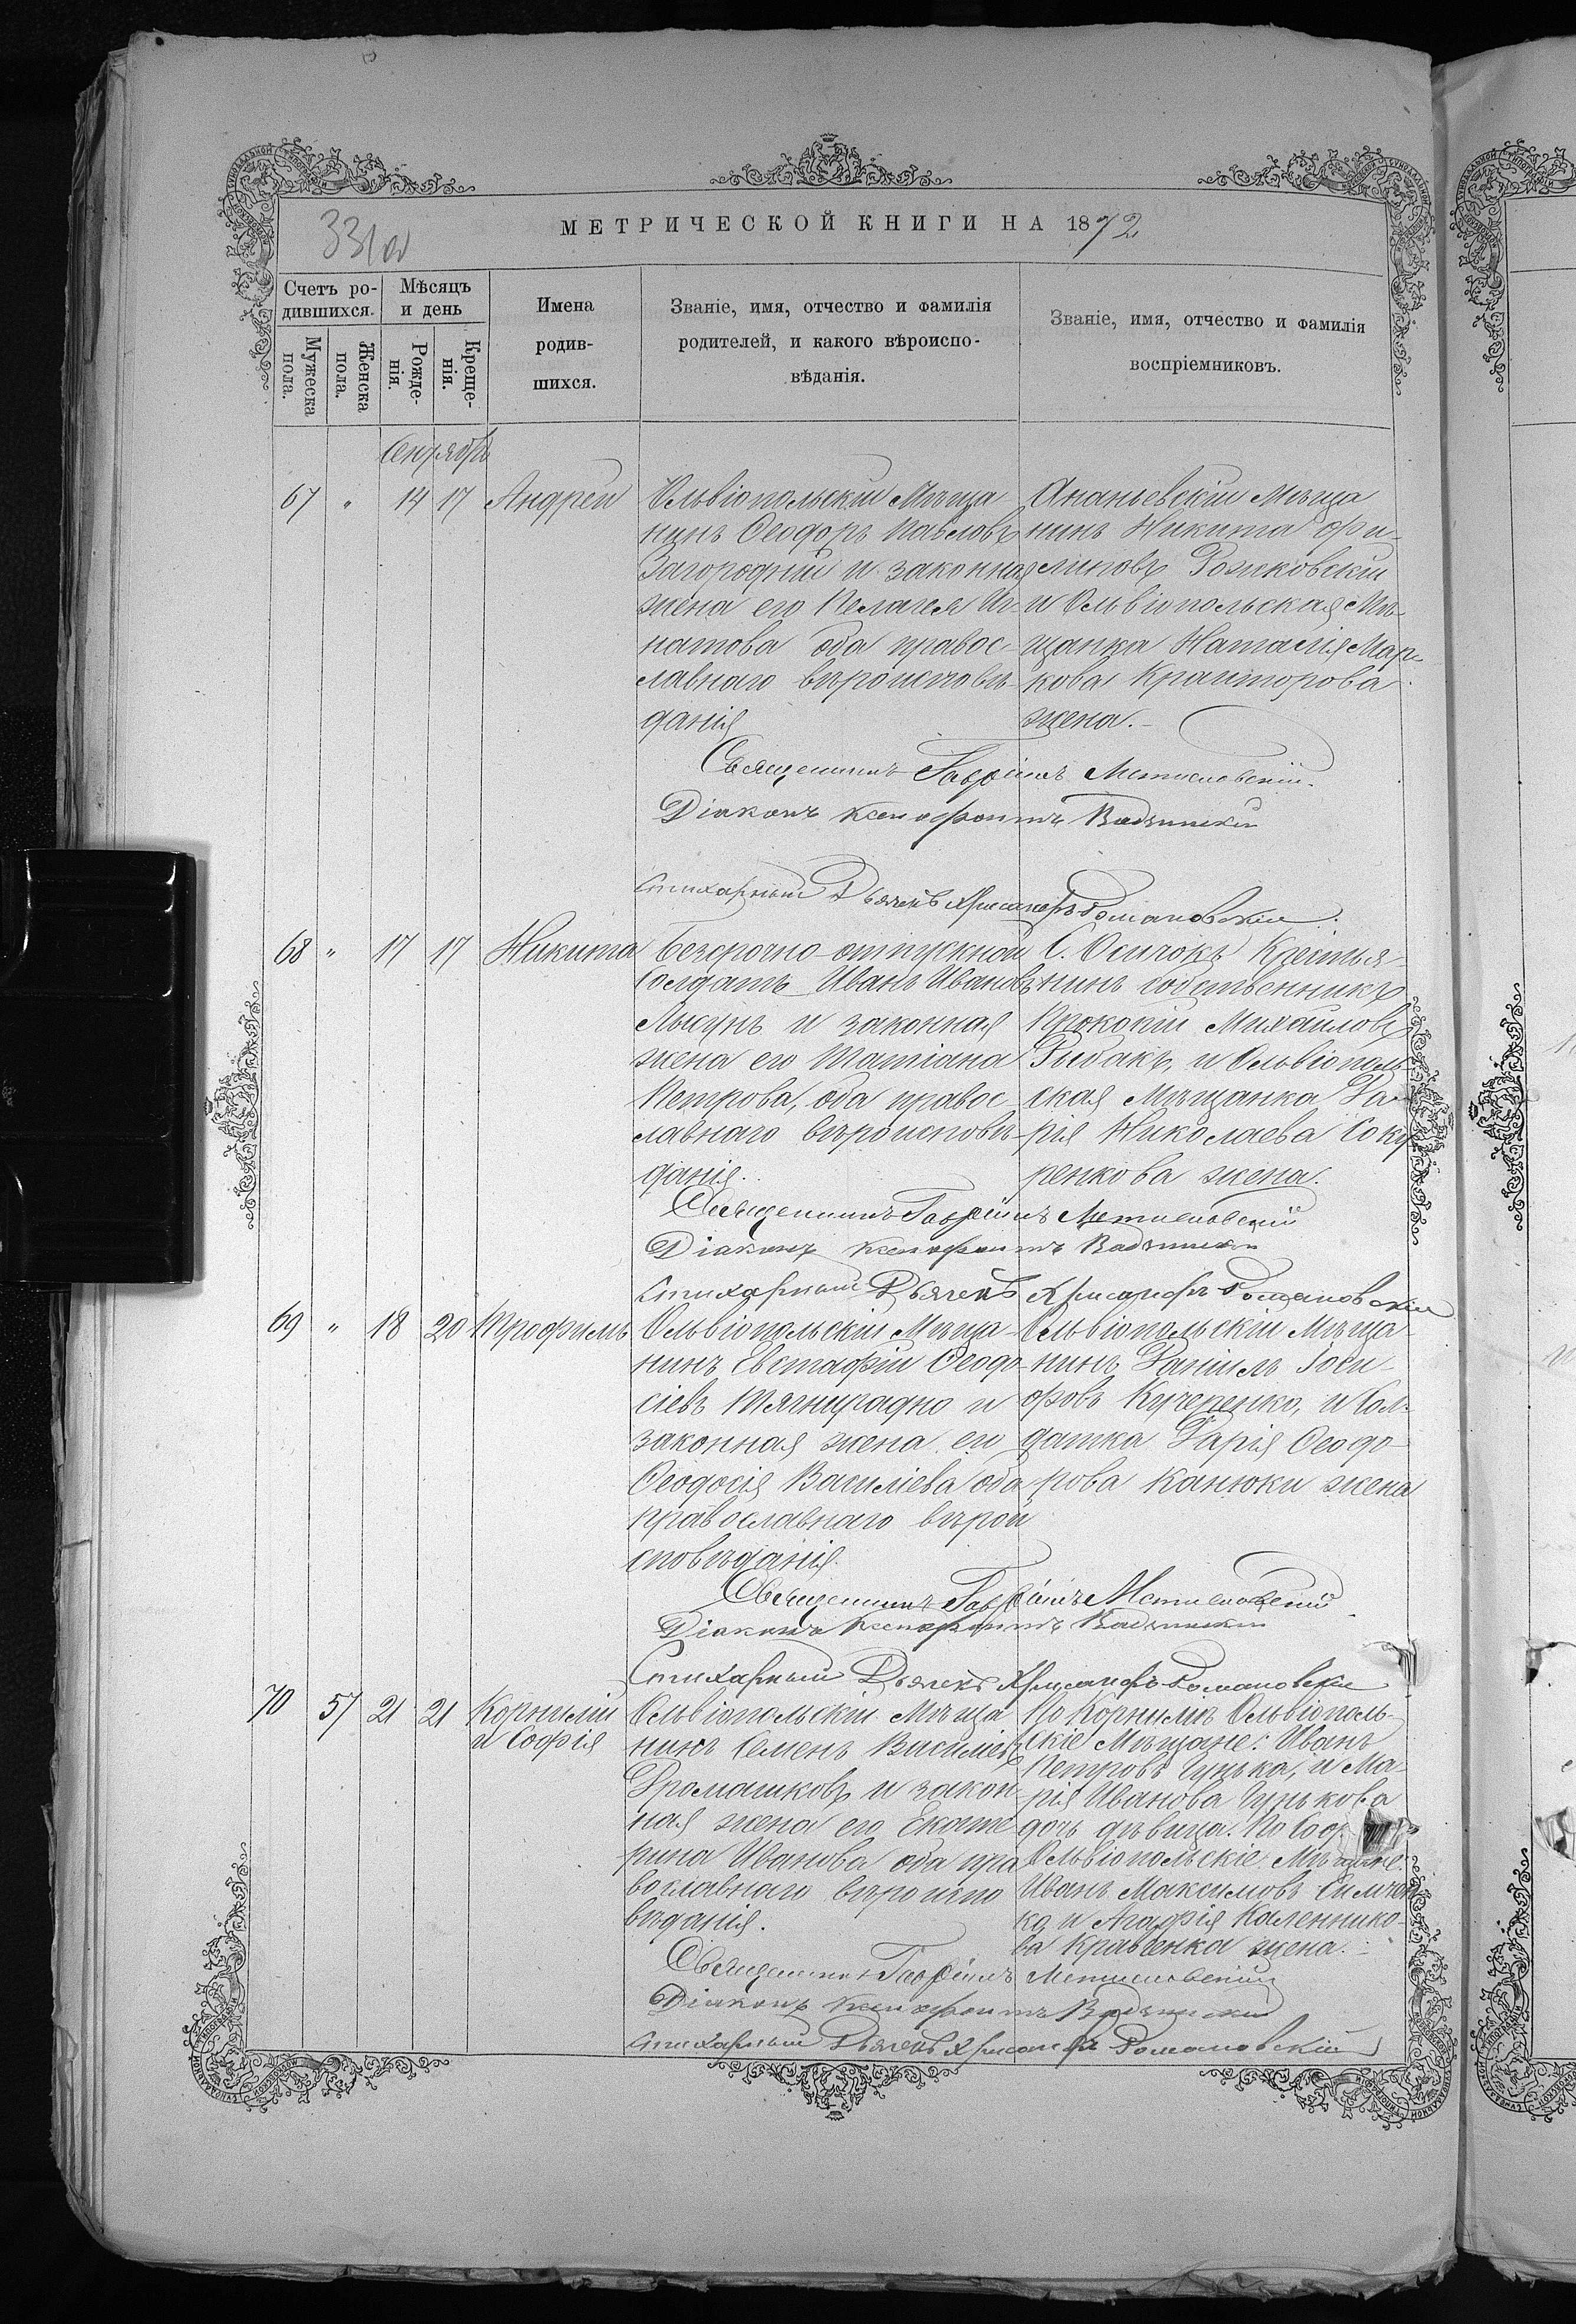 331об
МЕТРИЧЕСКОЙ КНИГИ НА 1872
Счетъ ро-
дившихся.
Мѣсяцъ
и день
Имена
родив-
шихся.
Званіе, имя, отчество и фамилія
родителей, и какого вѣроиспо-
вѣданія.
Званіе, имя, отчество и фамилія
воспріемниковъ.
Мужеска
пола.
Женска
пола.
Рожде-
нія.
Креще-
нія.
Сентябрь
67 " 14 17 Андрей
Ольвіопольскій Мѣща
нинъ Ѳеодоръ Павловъ
Загородній и законная
жена его Пелагея Иг-
натова оба правос-
лавнаго вѣроисповѣ-
данія
Ананьевскій Мѣща
нинъ Никита Фи-
липовъ Рожковскій
и Ольвіопольская Мѣ-
щанка Наталія Мар-
кова
жена.
Священникъ Гавріилъ Мстиславскій.
Діаконъ Ксенофонтъ
Стихарный Дьячекъ Хрисанфъ Романовскій.
68 " 17 17 Никита
Безсрочно-отпускной
Солдатъ Иванъ Ивановъ
Лысунъ и законная
жена его Татіана
Петрова, оба правос
лавнаго вѣроисповѣ-
данія.
С. Осичокъ Крестья-
нинъ собственникъ
Прокопій Михайловъ
Рыбакъ, и Ольвіополь
ская Мѣщанка Да-
рія Николаева Соку
ренкова жена.
Священникъ Гавріилъ Мстиславскій
Діаконъ Ксенофонтъ
Стихарный Дьячекъ Хрисанфъ Романовскій
69 " 18 20 Трофимъ
Ольвіопольскій Мѣща-
нинъ Евстафій Ѳеодо-
сіевъ Тягнирядно и
законная жена его
Ѳеодосія Василіева оба
православнаго вѣрои
сповѣданія.
Ольвіопольскій Мѣща-
нинъ Даніилъ Іоси-
фовъ Кучеренко, и Сол-
датка Дарія Ѳеодо-
рова Канюки жена
Священникъ Гавріилъ Мстиславскій
Діаконъ Ксенофонтъ
Стихарный Дьячекъ Хрисанфъ Романовскій
70 57 21 21 Корнилій
и Софія
Ольвіопольскій Мѣща
нинъ Семенъ Василіевъ
Дромашковъ и закон-
ная жена его Екате
рина Иванова оба пра
вославнаго вѣроиспо
вѣданія.
По Корнилію Ольвіополь-
скіе Мѣщане: Иванъ
Петровъ Гунька, и Ма-
рія Иванова Гунькова
дочь дѣвица. По Соф
Ольвіопольскіе Мѣщане:
Иванъ Максимовъ
ко и Агафія Каленнико-
ва Кравченка жена.
Священникъ Гавріилъ Мстиславскій
Діаконъ Ксенофонтъ
Стихарный Дьячекъ Хрисанфъ Романовскій